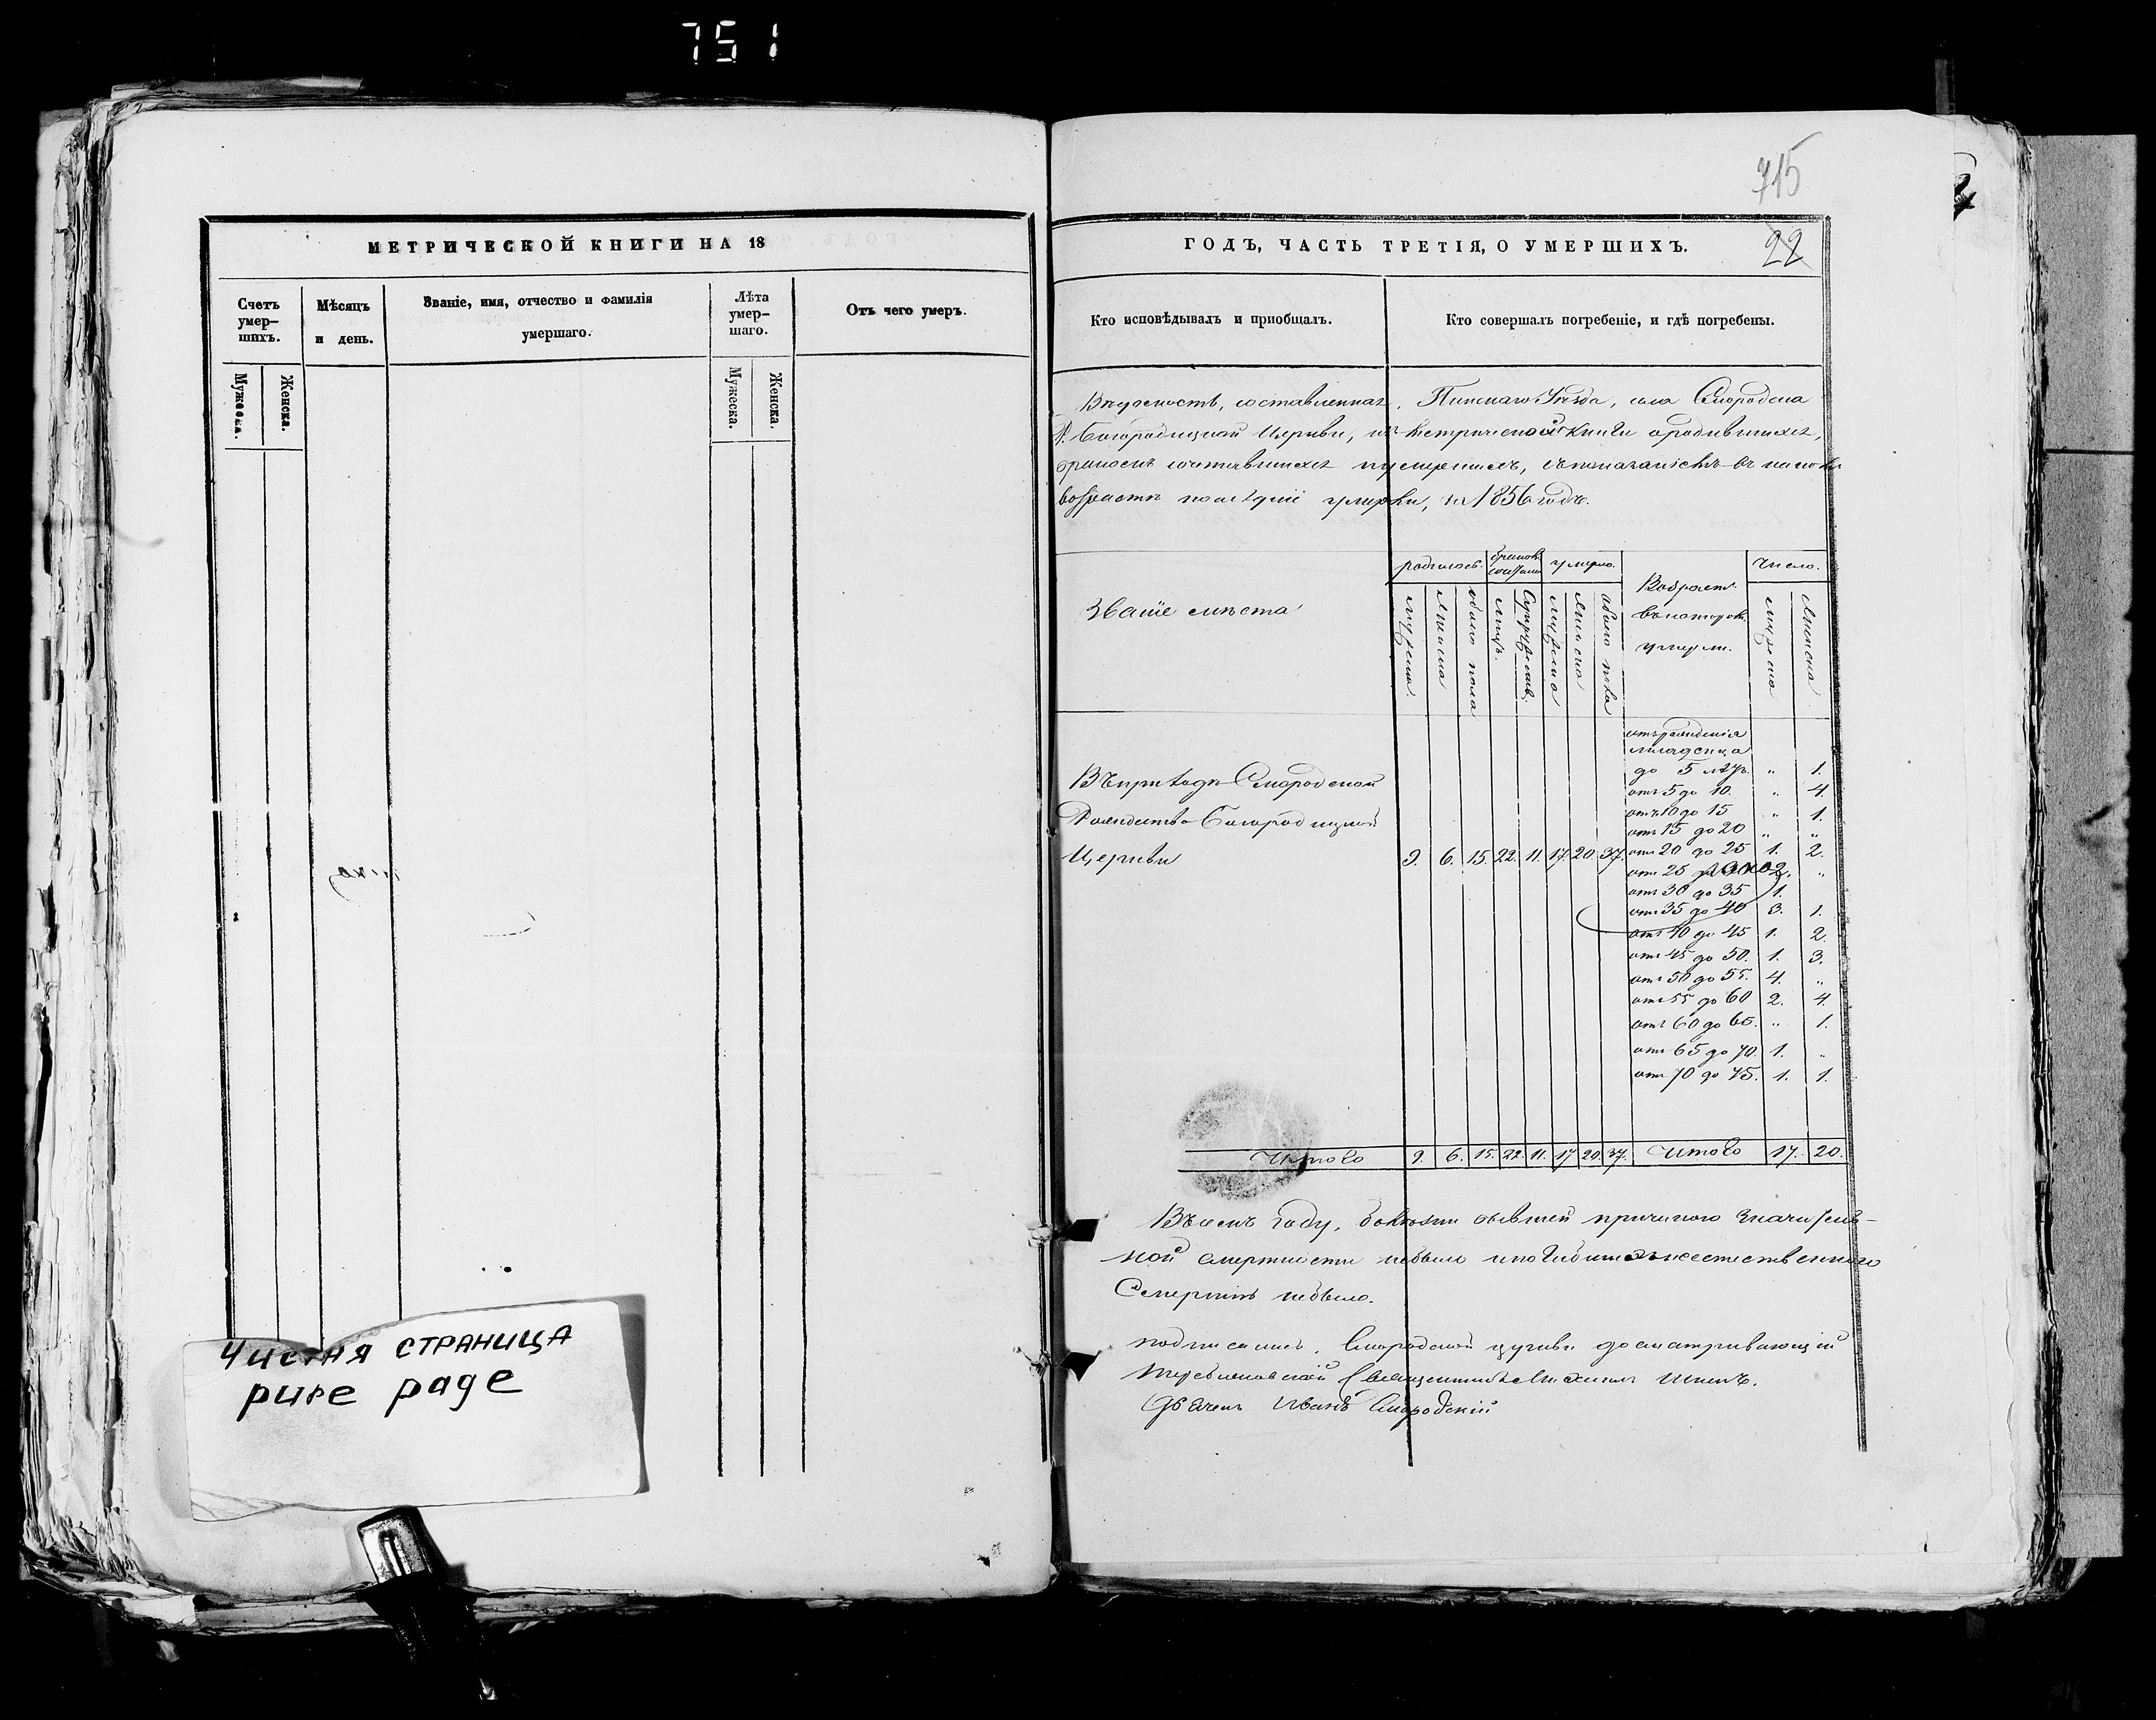 751
МЕТРИЧЕСКОЙ КНИГИ НА 18
Счетъ умер-
шихъ.
Мѣсяцъ
и день.
Званіе, имя, отчество и фамилія
умершаго.
Лѣта
умер-
шаго.
Отъ чего умеръ.
Мужеска.
Женска.
Мужеска.
Женска.
Чистая СТРАНИЦА
pure page
715
ГОДЪ, ЧАСТЬ ТРЕТІЯ, О УМЕРШИХЪ.
22
Кто исповѣдывалъ и приобщалъ.
Кто совершалъ погребеніе, и гдѣ погребены.
составленная, Пинскаго Уѣзда, села Смородска
Р. Богородицкой Церкви, изъ метрической книги о родившихся,
бракомъ сочетавшихся
возрастѣ послѣдніе умерли, за 1856 годъ.
Званіе мѣста
родилось.
умерло.
Возрастъ
въ которомъ
умерли.
Число.
мужеска.
женска
обоего пола
лицъ.
Супружествъ.
мужеска
женска
обоего пола
мужеска
женска
отъ рожденія
младенца
до 5 лѣтъ. " 1.
отъ 5 до 10. " 4.
отъ 10 до 15 " 1.
отъ 15 до 20 " "
Въ приходѣ Смородской
Рождество Богородицкой
Церкви 9. 6. 15. 22. 11. 17. 20. 37. отъ 20 до 25 1. 2.
отъ 25 2. "
отъ 30 до 35 1.
отъ 35 до 40 3. 1.
отъ 40 до 45 1. 2.
отъ 45 до 50. 1. 3.
отъ 50 до 55. 4. "
отъ 55 до 60 2. 4.
отъ 60 до 65. " 1.
отъ 65 до 70. 1. "
отъ 70 до 75. 1. 1.
Итого 9. 6. 15. 22. 11. 17 20. 37. Итого 17. 20.
Въ семъ году, болѣзни бывшей причиною значитель-
ной смертности небыло
Смертію небыло.
подписались. Смородской церкви досматривающій
Священникъ
Дьячекъ Иванъ Смородскій